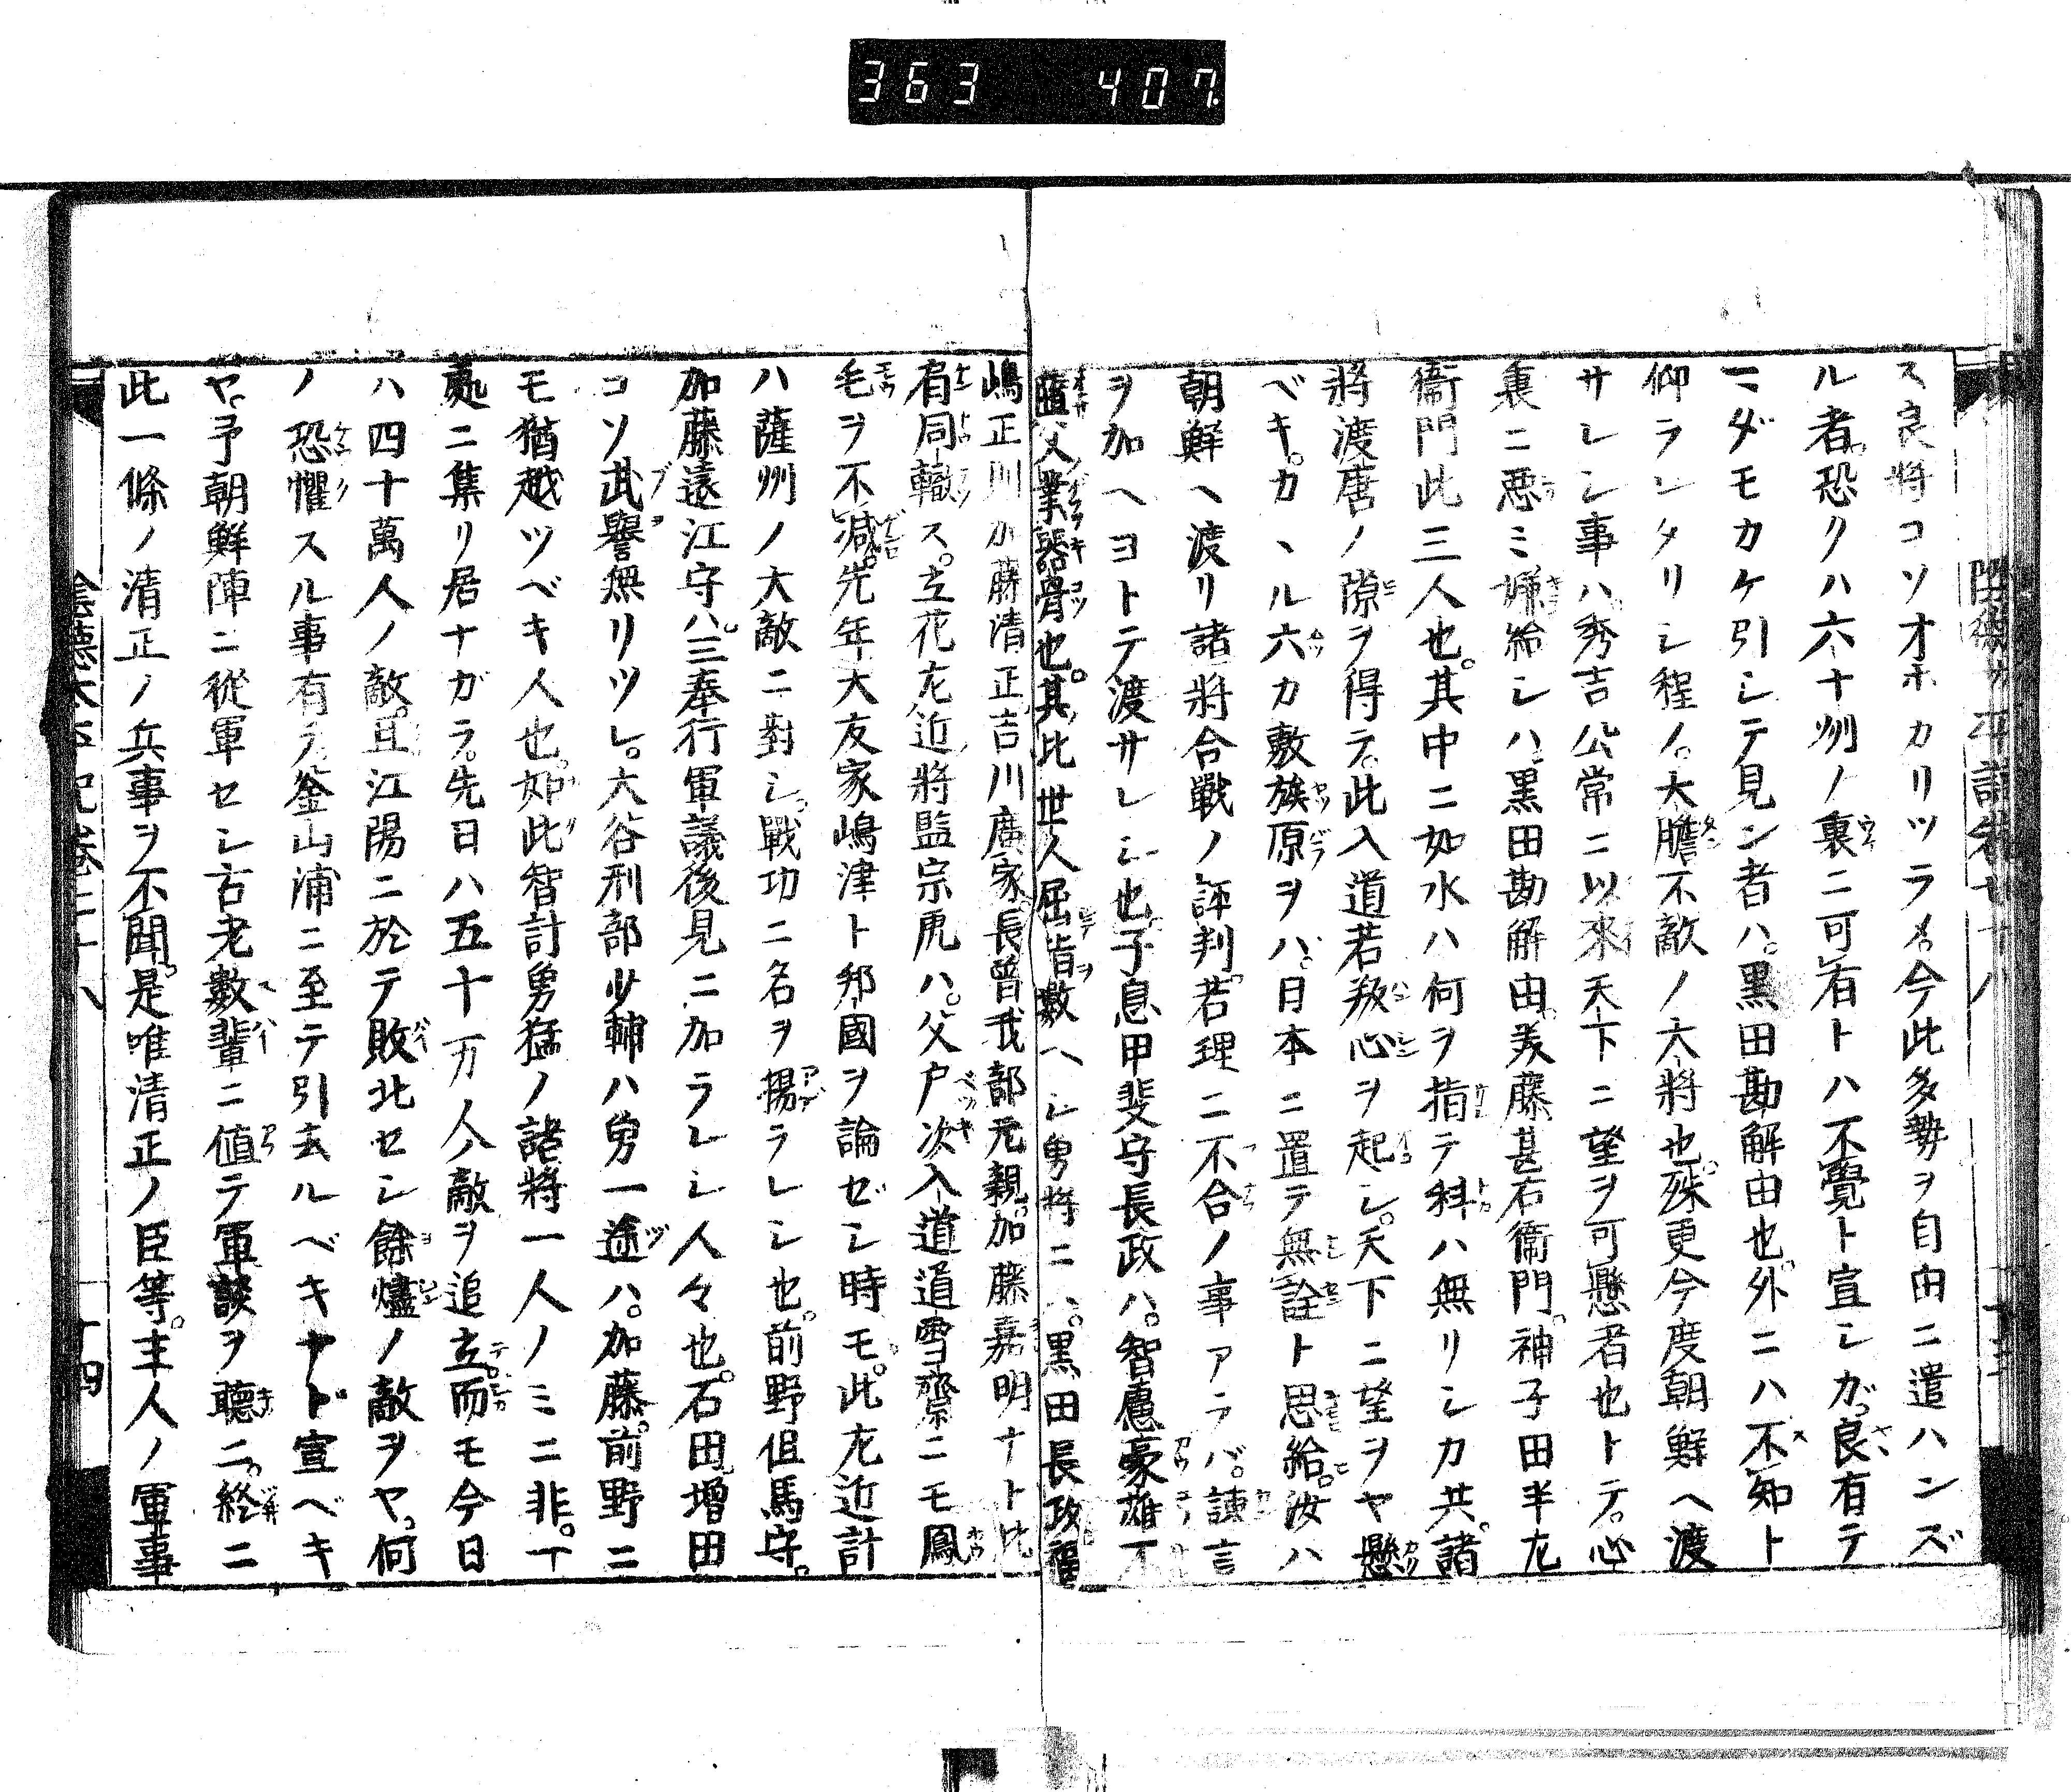 363 407
ス良將コソオホカリツラメ。今此多勢ヲ自由ニ遣ハンズ
ル者。恐クハ六十州ノ裏ニ可有トハ不覺ト宣シガ。良有テ
ニダモカケ引シテ見ン者ハ。黒田勘解由也。外ニハ不知ト
仰ラレタリシ程ノ。大膽不敵ノ大將也。殊更今度朝鮮ヘ渡
サレシ事ハ秀吉公常ニ以來天下ニ望ヲ可懸者也トテ。心
裏ニ悪ミ嫌給シハ。黒田勘解由。美藤甚右衞門。神子田半左
衞門此三人也。其中ニ如水ハ何ヲ指テ科ハ無リシカ共。諸
將渡唐ノ隙ヲ得テ。此入道若叛心ヲ起シ。天下ニ望ヲヤ懸
ベキ。カヽル六カ敷族原ヲハ。日本ニ置テ無詮ト思給。汝ハ
朝鮮ヘ渡リ諸將合戰ノ評判。若理ニ不合ノ事アラバ。諫言
ヲ加ヘヨトテ渡サレシ也子息甲斐守長政ハ。智慮豪雄不
墮父業器骨也。其比世人屈指數ヘシ勇將ニハ。黒田長政福
嶋正則加藤清正吉川廣家長曾我部元親加藤嘉明ナト比
肩同轍ス。立花左近將監宗虎ハ。父戸次入道道雪齋ニモ鳳
毛ヲ不減。先年大友家嶋津ト邦國ヲ論ゼシ時モ。此左近計
ハ薩州ノ大敵ニ對シ。戰功ニ名ヲ揚ラレシ也。前野但馬守。
加藤遠江守ハ。三奉行軍議後見ニ加ラレシ人々也。石田増田
コソ武譽無リツレ。大谷刑部少輔ハ勇一途ハ。加藤。前野ニ
モ猶越ツベキ人也。如此智計勇猛ノ諸將一人ノミニ非。一
處ニ集リ居ナガラ。先日ハ五十万人敵ヲ追立。而モ今日
ハ四十萬人ノ敵。且江陽ニ於テ敗北セシ餘燼ノ敵ヲヤ。何
ノ恐懼スル事有テ。釜山浦ニ至テ引去ルベキヤド宣ベキ
ヤ。予朝鮮陣ニ從軍セシ古老數輩ニ値テ軍談ヲ聽ニ。終ニ
此一條ノ清正ノ兵事ヲ不聞。是唯清正ノ臣等。主人ノ軍事
陰德太平記卷二十八
十四